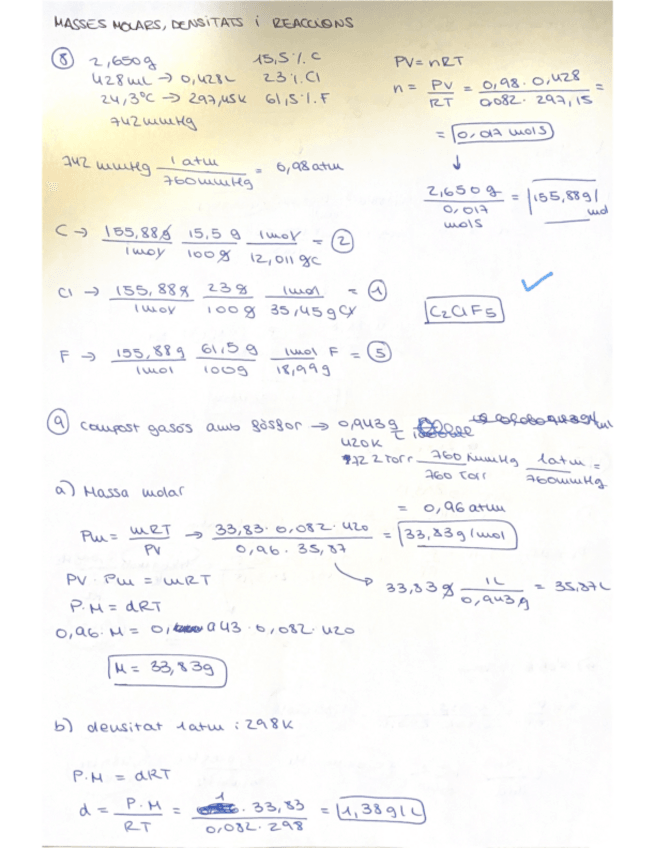 MASSES MOLARS, DENSITATS i REACCIONS
8 2,650g 15,5%. C PV = nRT
428ml → 0,428L 23%. Cl n = PV/RT = 0,98 · 0,428 / 0,082 · 297,15 =
24,3ºC → 297,45K 61,5%. F
742mmHg = 0,017 mols
742 mmHg 1 atm / 760mmHg = 0,98 atm ↓
2,650g / 0,017 mols = 155,88g/mol
C → 155,88g / 1mol 15,5 g / 100g 1mol / 12,011 gC = 2
Cl → 155,88g / 1mol 23g / 100g 1mol / 35,45gCl = 1
C2ClF5
F → 155,88g / 1mol 61,5g / 100g 1mol F / 18,99g = 5
9 Compost gasós amb fòsfor → 0,943g / L
420K
722 Torr 760 mmHg / 760 Torr 1atm / 760mmHg =
a) Massa molar
= 0,96 atm
Pm = mRT / PV → 33,83 · 0,082 · 420 / 0,96 · 35,87 = 33,83g/mol
PV · Pm = mRT 33,83g 1L / 0,943g = 35,87L
P·M = dRT
0,96 · M = 0,943 · 0,082 · 420
M = 33,83g
b) densitat 1atm i 298K
P·M = dRT
d = P·M / RT = 1 · 33,83 / 0,082 · 298 = 1,38g/L